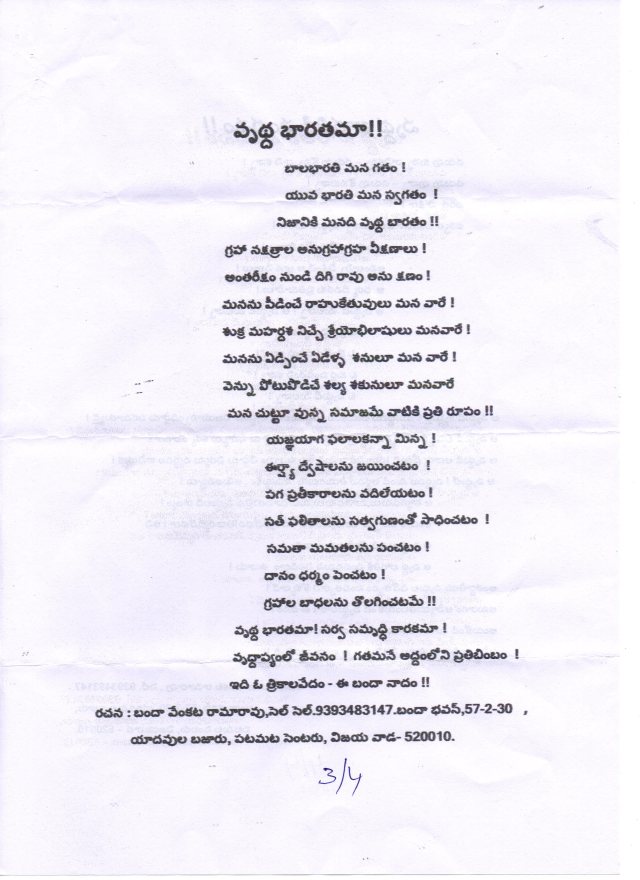 వృధ్ద భారతమా!!
బాలభారతి మన గతం !
యువ భారతి మన స్వగతం !
నిజానికి మనది వృధ్ద బారతం !!
గ్రహా నక్షత్రాల అనుగ్రహాగ్రహ వీక్షణాలు !
అంతరీక్షం నుండి దిగి రావు అను క్షణం !
మనను పీడించే రాహుకేతువులు మన వారే !
శుక్ర మహర్దశ నిచ్చే శ్రేయోభిలాషులు మనవారే !
మనను ఏడ్పించే ఏడేళ్ళ శనులూ మన వారే !
వెన్ను పోటుపొడిచే శల్య శకునులూ మనవారే
మన చుట్టూ వున్న సమాజమే వాటికి ప్రతి రూపం !!
యజ్ఞయాగ ఫలాలకన్నా మిన్న !
ఈర్ష్యా ద్వేషాలను జయించటం !
పగ ప్రతీకారాలను వదిలేయటం !
సత్ ఫలితాలను సత్వగుణంతో సాధించటం !
సమతా మమతలను పంచటం !
దానం ధర్మం పెంచటం !
గ్రహాల బాధలను తొలగించటమే !!
వృధ్ద భారతమా! సర్వ సమృధ్ది కారకమా !
వృద్దాప్యంలో జీవనం ! గతమనే అద్దంలోని ప్రతిబింబం !
ఇది ఓ త్రికాలవేదం - ఈ బందా నాదం !!
రచన : బందా వేంకట రామారావు,సెల్ సెల్.9393483147.బందా భవస్,57-2-30 ,
యాదవుల బజారు, పటమట సెంటరు, విజయ వాడ- 520010.
3/4